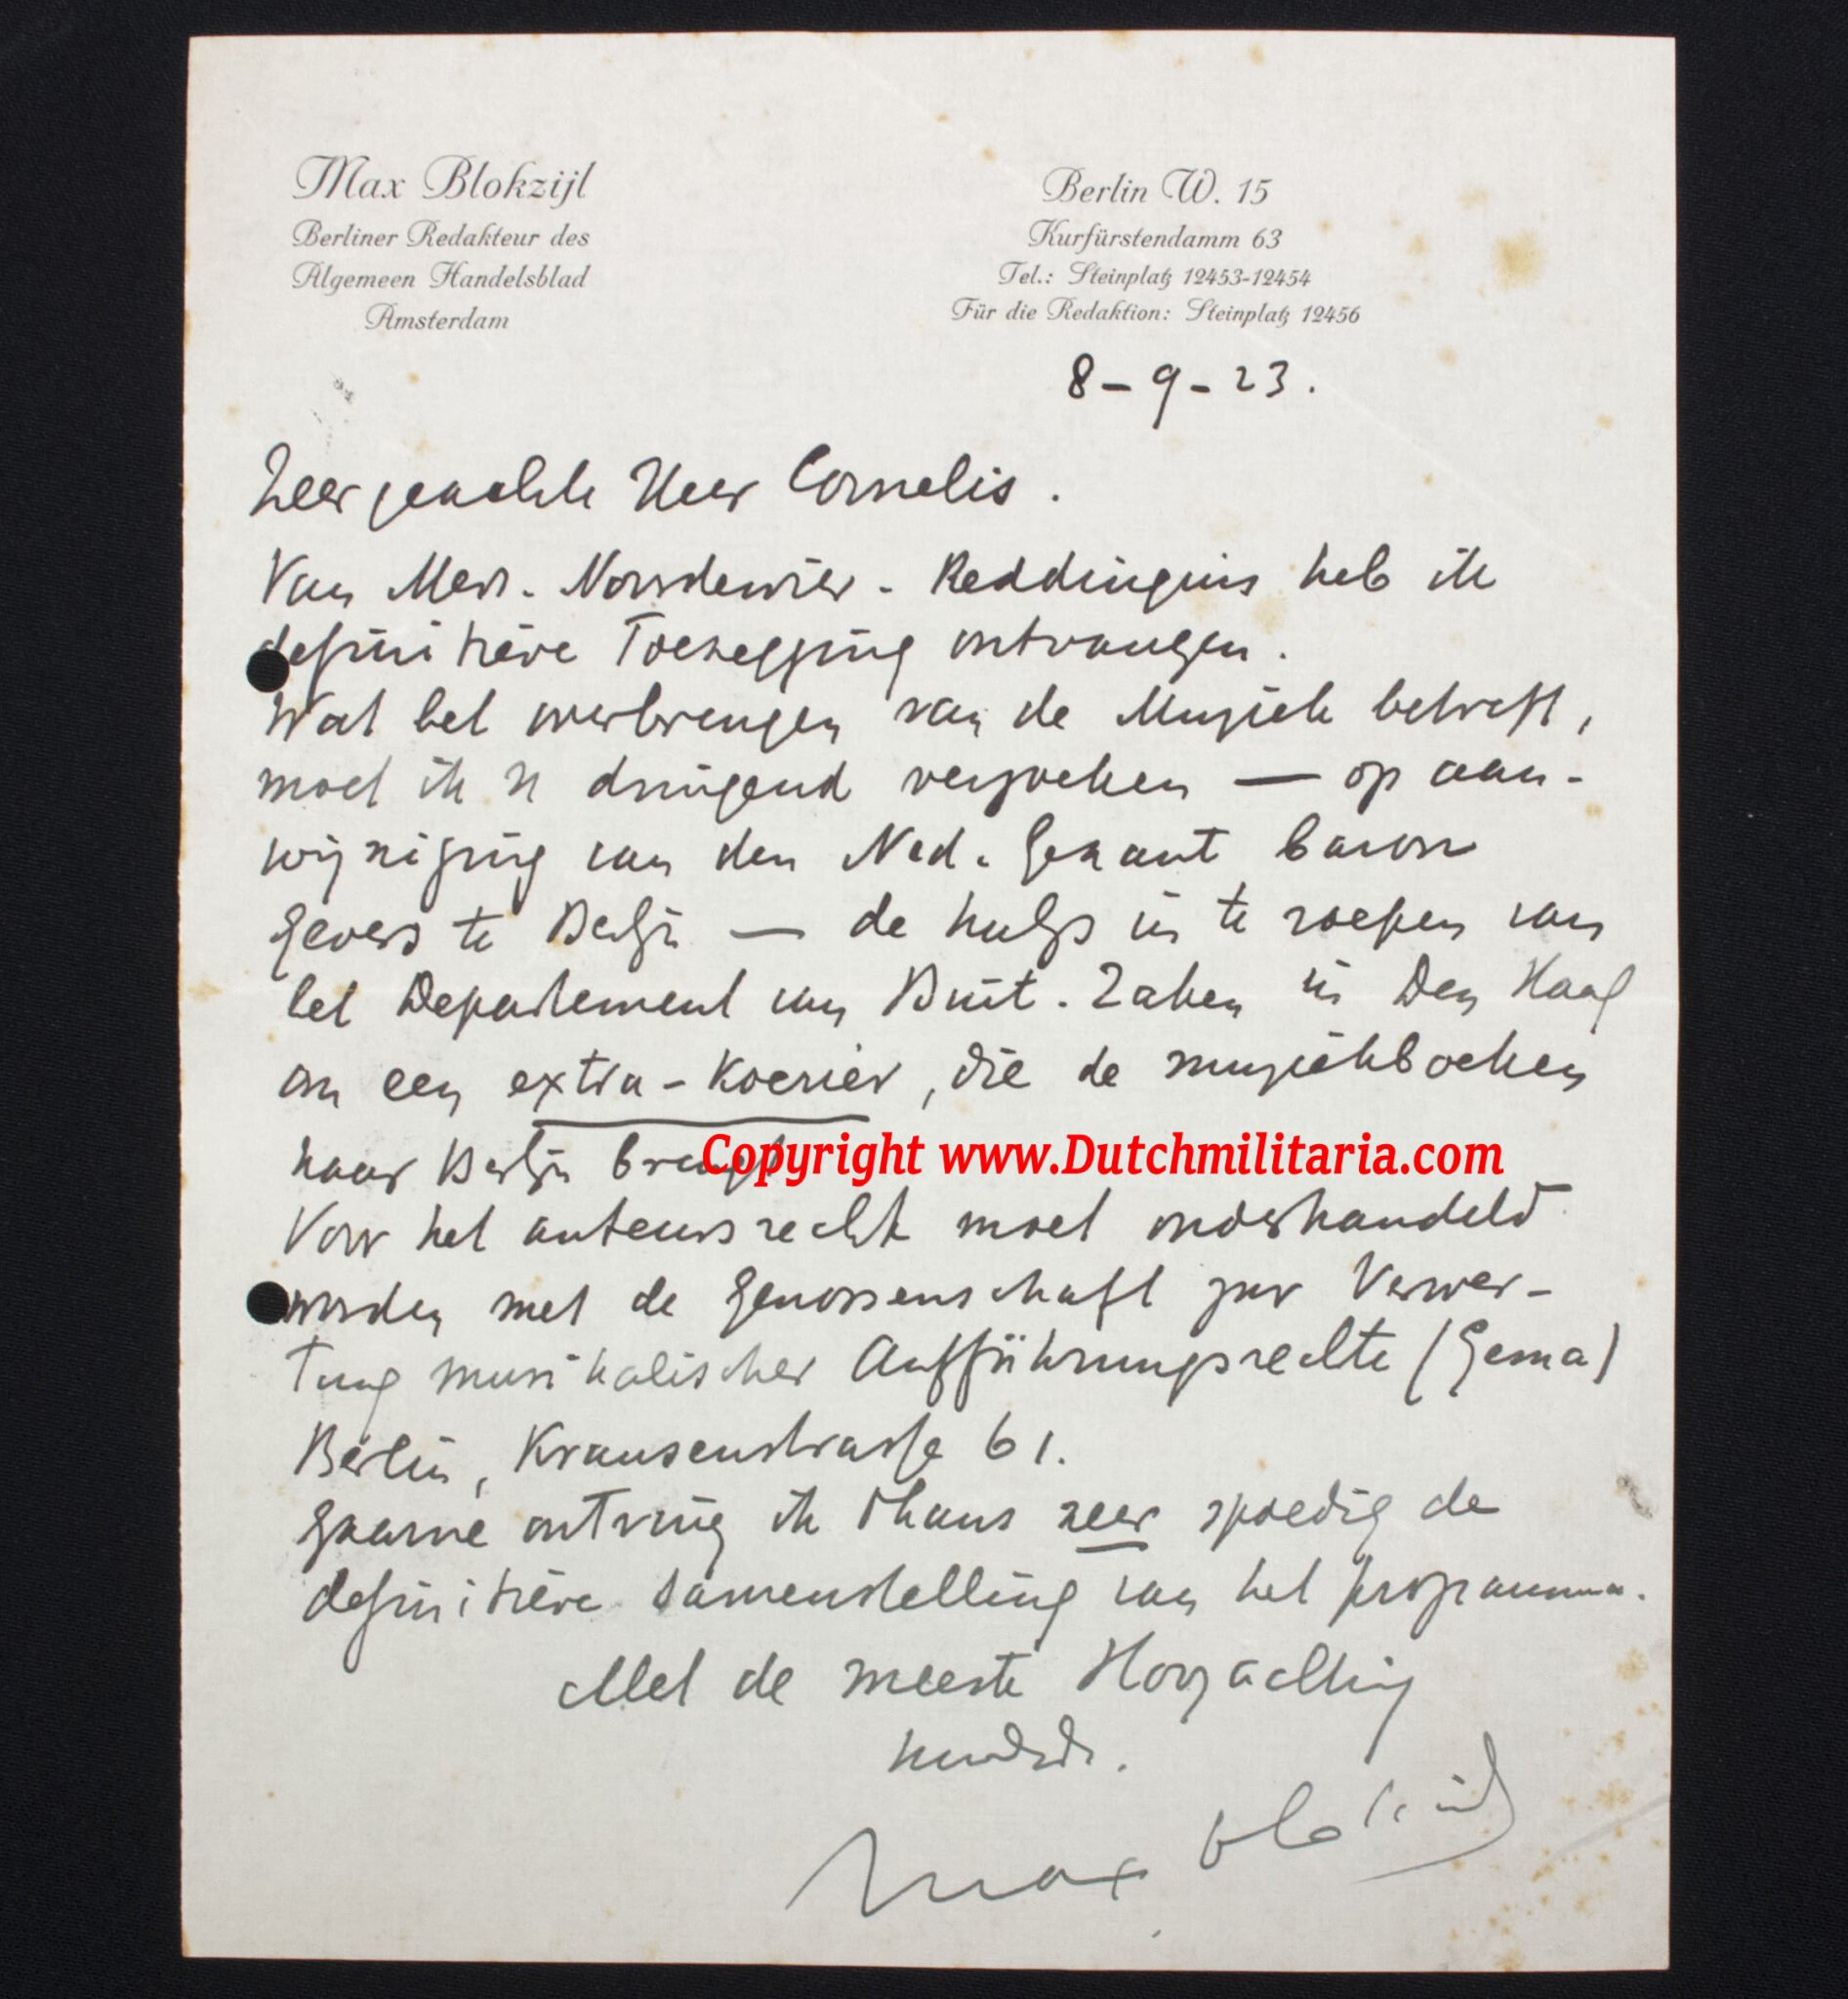 Max Blokzijl
Berliner Redakteur des
Algemeen Handelsblad
Amsterdam
Berlin W. 15
Kurfürstendamm 63
Tel.: Steinplatz 12453-12454
Für die Redaktion: Steinplatz 12456
8-9-23.
Zeer geachte Heer Cornelis.
Van Mevr. Noordewier-Reddingius heb ik
definitieve Toezegging ontvangen.
Wat het overbrengen van de Muziek betreft,
moet ik U dringend verzoeken — op aan-
wijziging van den Ned. Gezant baron
Gevers te Berlijn — de hulp in te roepen van
het Departement van Buit. Zaken in Den Haag
om een extra-Koerier, die de muziekboeken
naar Berlijn brengt
Copyright www.Dutchmilitaria.com
Voor het auteursrecht moet onderhandeld
worden met de Genossenschaft zur Verwer-
tung musikalischer Aufführungsrechte (Gema)
Berlin, Krausenstrasse 61.
Gaarne ontving ik thans zeer spoedig de
definitieve samenstelling van het programma.
Met de meeste Hoogachting
Max Blokzijl